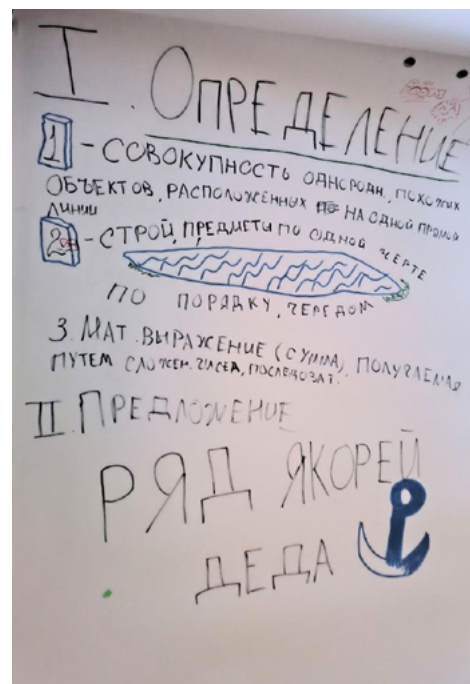 I. ОПРЕДЕЛЕНИЕ
1 - СОВОКУПНОСТЬ ОДНОРОДН. ПОХОЖИХ
ОБЪЕКТОВ, РАСПОЛОЖЕННЫХ НА ОДНОЙ ПРЯМОЙ
ЛИНИИ
2 - СТРОЙ, ПРЕДМЕТЫ ПО ОДНОЙ ЧЕРТЕ
ПО ПОРЯДКУ, ЧЕРЕДОМ
3. МАТ. ВЫРАЖЕНИЕ (СУММА), ПОЛУЧАЕМАЯ
ПУТЕМ СЛОЖЕН. ЧИСЕЛ, ПОСЛЕДОВАТ.
II. ПРЕДЛОЖЕНИЕ
РЯД ЯКОРЕЙ
ДЕДА